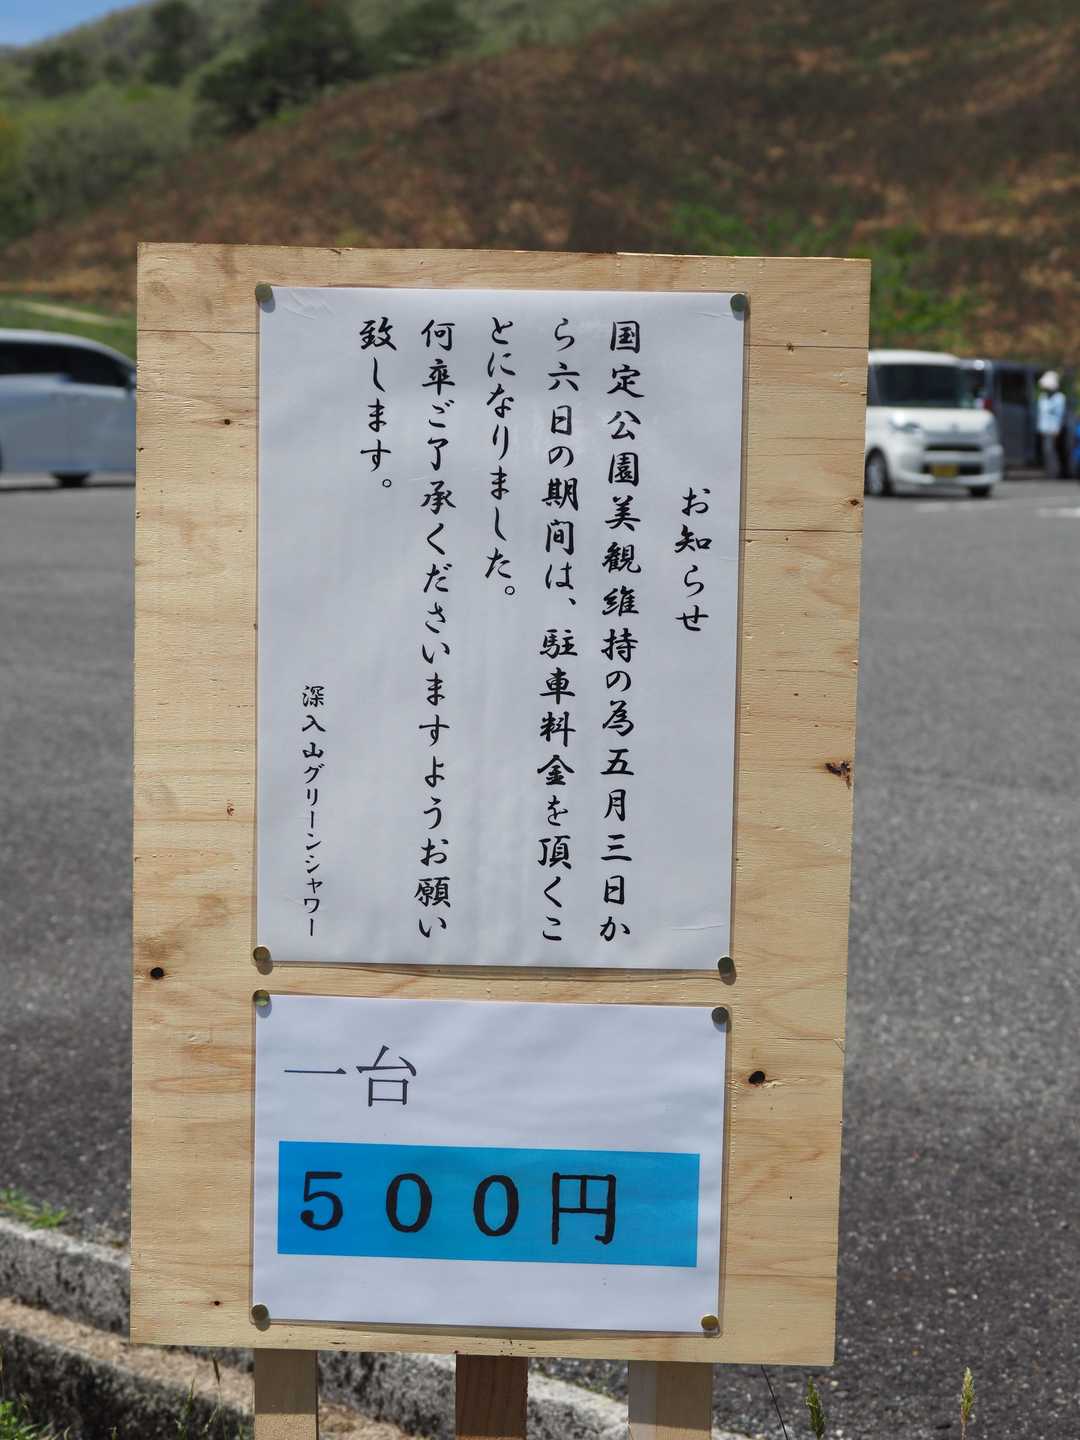 お知らせ
国定公園美観維持の為五月三日か
ら六日の期間は、駐車料金を頂くこ
とになりました。
何卒ご了承くださいますようお願い
致します。
深入山グリーンシャワー
一台
５００円